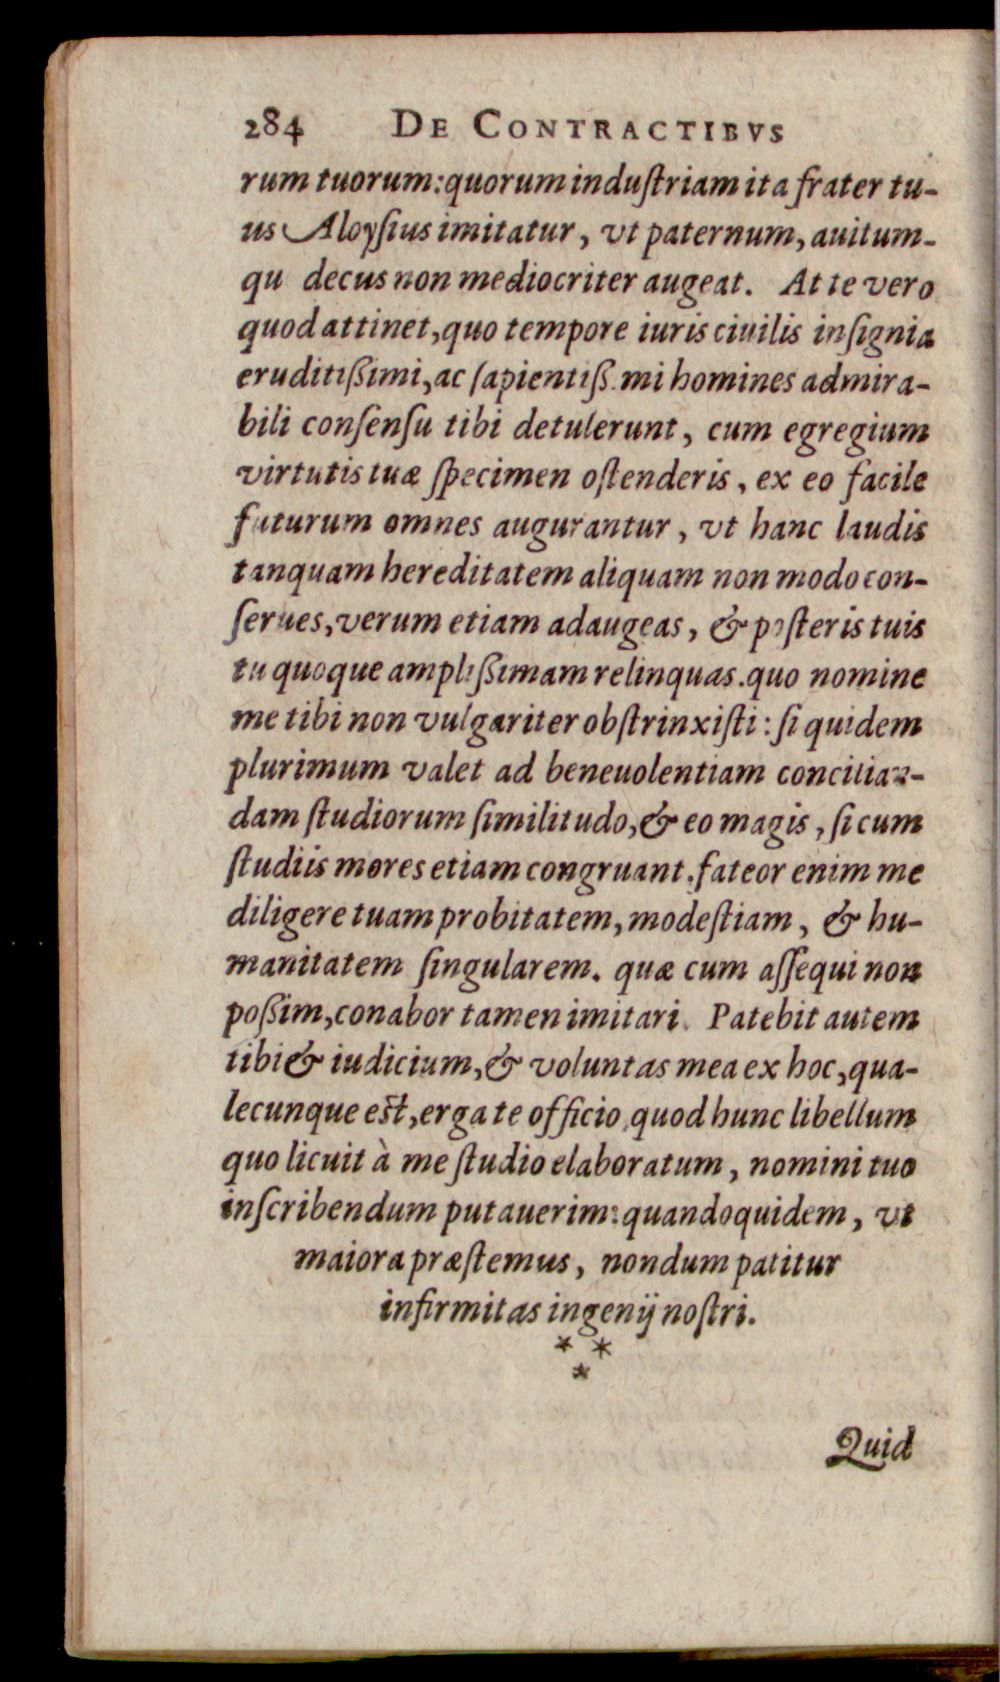 284 DE CONTRACTIBVS
rum tuorum: quorum induſtriam ita frater tu-
us Aloyſius imitatur, vt paternum, auitum-
qu decus non mediocriter augeat. At te vero
quod attinet, quo tempore iuris ciuilis inſignia
eruditißimi, ac ſapientiß.mi homines admira-
bili conſenſu tibi detulerunt, cum egregium
virtutis tuæ ſpecimen oſtenderis, ex eo facile
futurum omnes augurantur, vt hanc laudis
tanquam hereditatem aliquam non modo con-
ſerues, verum etiam adaugeas, & poſteris tuis
tu quoque amplißimam relinquas. quo nomine
me tibi non vulgariter obſtrinxiſti: ſi quidem
plurimum valet ad beneuolentiam concilian-
dam ſtudiorum ſimilitudo, & eo magis, ſi cum
ſtudiis mores etiam congruant. fateor enim me
diligere tuam probitatem, modeſtiam, & hu-
manitatem ſingularem. quæ cum aſſequi non
poßim, conabor tamen imitari. Patebit autem
tibi & iudicium, & voluntas mea ex hoc, qua-
lecunque eſt, erga te officio, quod hunc libellum
quo licuit à me ſtudio elaboratum, nomini tuo
inſcribendum putauerim: quandoquidem, vt
maiora præſtemus, nondum patitur
infirmitas ingenij noſtri.
* *
*
Quid